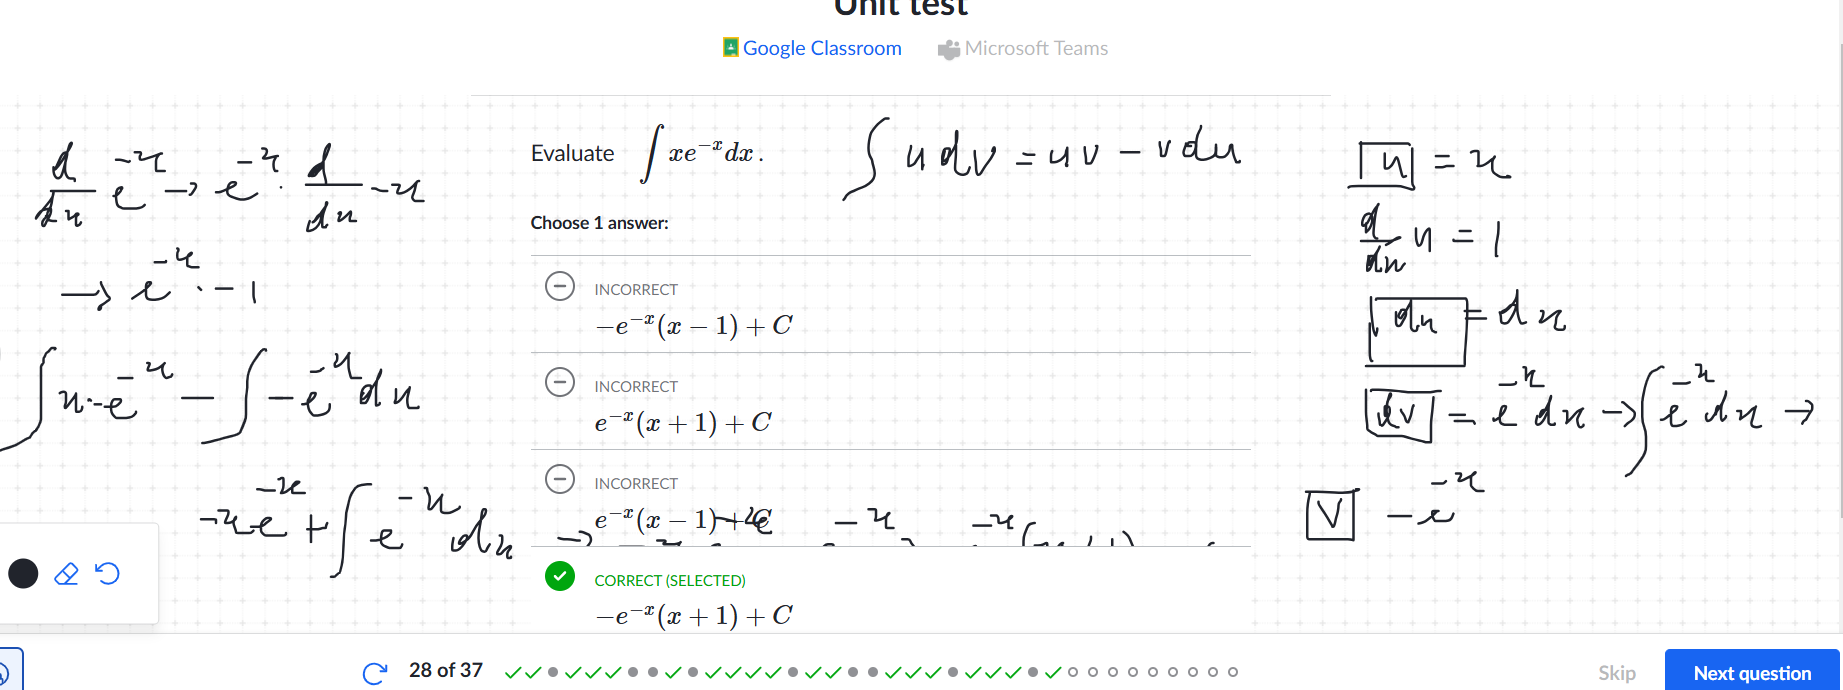 Unit test
Google Classroom Microsoft Teams
Evaluate ∫ xe^{-x} dx .
∫ u dv = uv - v du
Choose 1 answer:
INCORRECT
-e^{-x}(x - 1) + C
INCORRECT
e^{-x}(x + 1) + C
INCORRECT
e^{-x}(x - 1) + C
CORRECT (SELECTED)
-e^{-x}(x + 1) + C
d/dx e^{-x} → e^{-x} · d/dx -x
→ e^{-x} · -1
∫ x · -e^{-x} - ∫ -e^{-x} dx
-x e^{-x} + ∫ e^{-x} dx →
u = x
d/dx u = 1
du = dx
dv = e^{-x} dx → ∫ e^{-x} dx →
v -e^{-x}
28 of 37
Skip
Next question